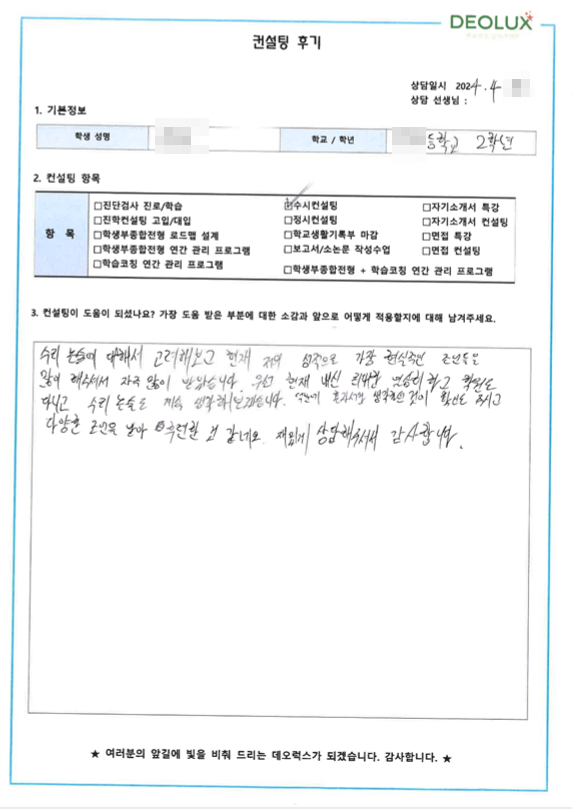 DEOLUX
컨설팅 후기
상담일시 2024. 4
상담 선생님 :
1. 기본정보
학생 성명
학교 / 학년
등학교 2학년
2. 컨설팅 항목
항 목
□진단검사 진로/학습
☑수시컨설팅
□자기소개서 특강
□진학컨설팅 고입/대입
□정시컨설팅
□자기소개서 컨설팅
□학생부종합전형 로드맵 설계
□학교생활기록부 마감
□면접 특강
□학생부종합전형 연간 관리 프로그램
□보고서/소논문 작성수업
□면접 컨설팅
□학습코칭 연간 관리 프로그램
□학생부종합전형 + 학습코칭 연간 관리 프로그램
3. 컨설팅이 도움이 되셨나요? 가장 도움 받은 부분에 대한 소감과 앞으로 어떻게 적용할지에 대해 남겨주세요.
수리 논술에 대해서 고려해보고 현재 저의 성적으로 가장 현실적인 조언들을
많이 해주셔서 자극 많이 받았습니다. 우선 현재 내신 열심히 하고
수리 논술도 계속 생각해보겠습니다. 혼자서만 생각했던 것이
다양한 조언을 받아 것 같네요. 재밌게 상담해주셔서 감사합니다.
★ 여러분의 앞길에 빛을 비춰 드리는 데오럭스가 되겠습니다. 감사합니다. ★